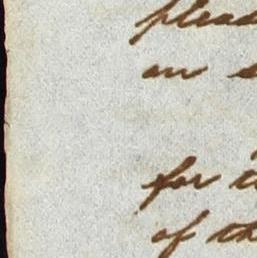 pleas
on s
for t
of th